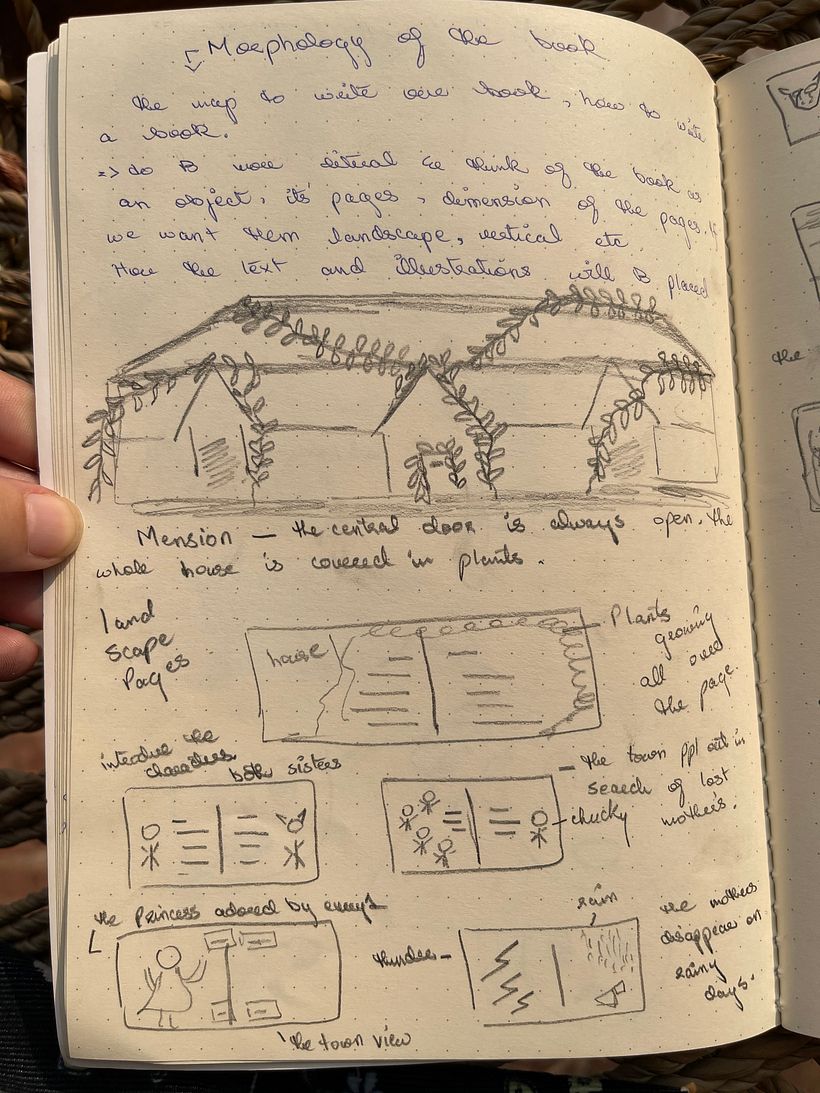 Morphology of the book
the map to write our book, how to write
a book.
=> do B more critical to think of the book as
an object, its pages, dimension of the pages. If
we want them landscape, vertical etc
How the text and illustrations will B placed
Mension - the central door is always open. the
whole house is covered in plants.
land
scape
Pages
house
Plants
growing
all over
the page.
introduce the
characters
both sisters
- the town ppl out in
search of lost
mothers.
chucky
the Princess adored by every1
the town view
thunder -
rain
the mothers
disappear on
rainy
days.
the